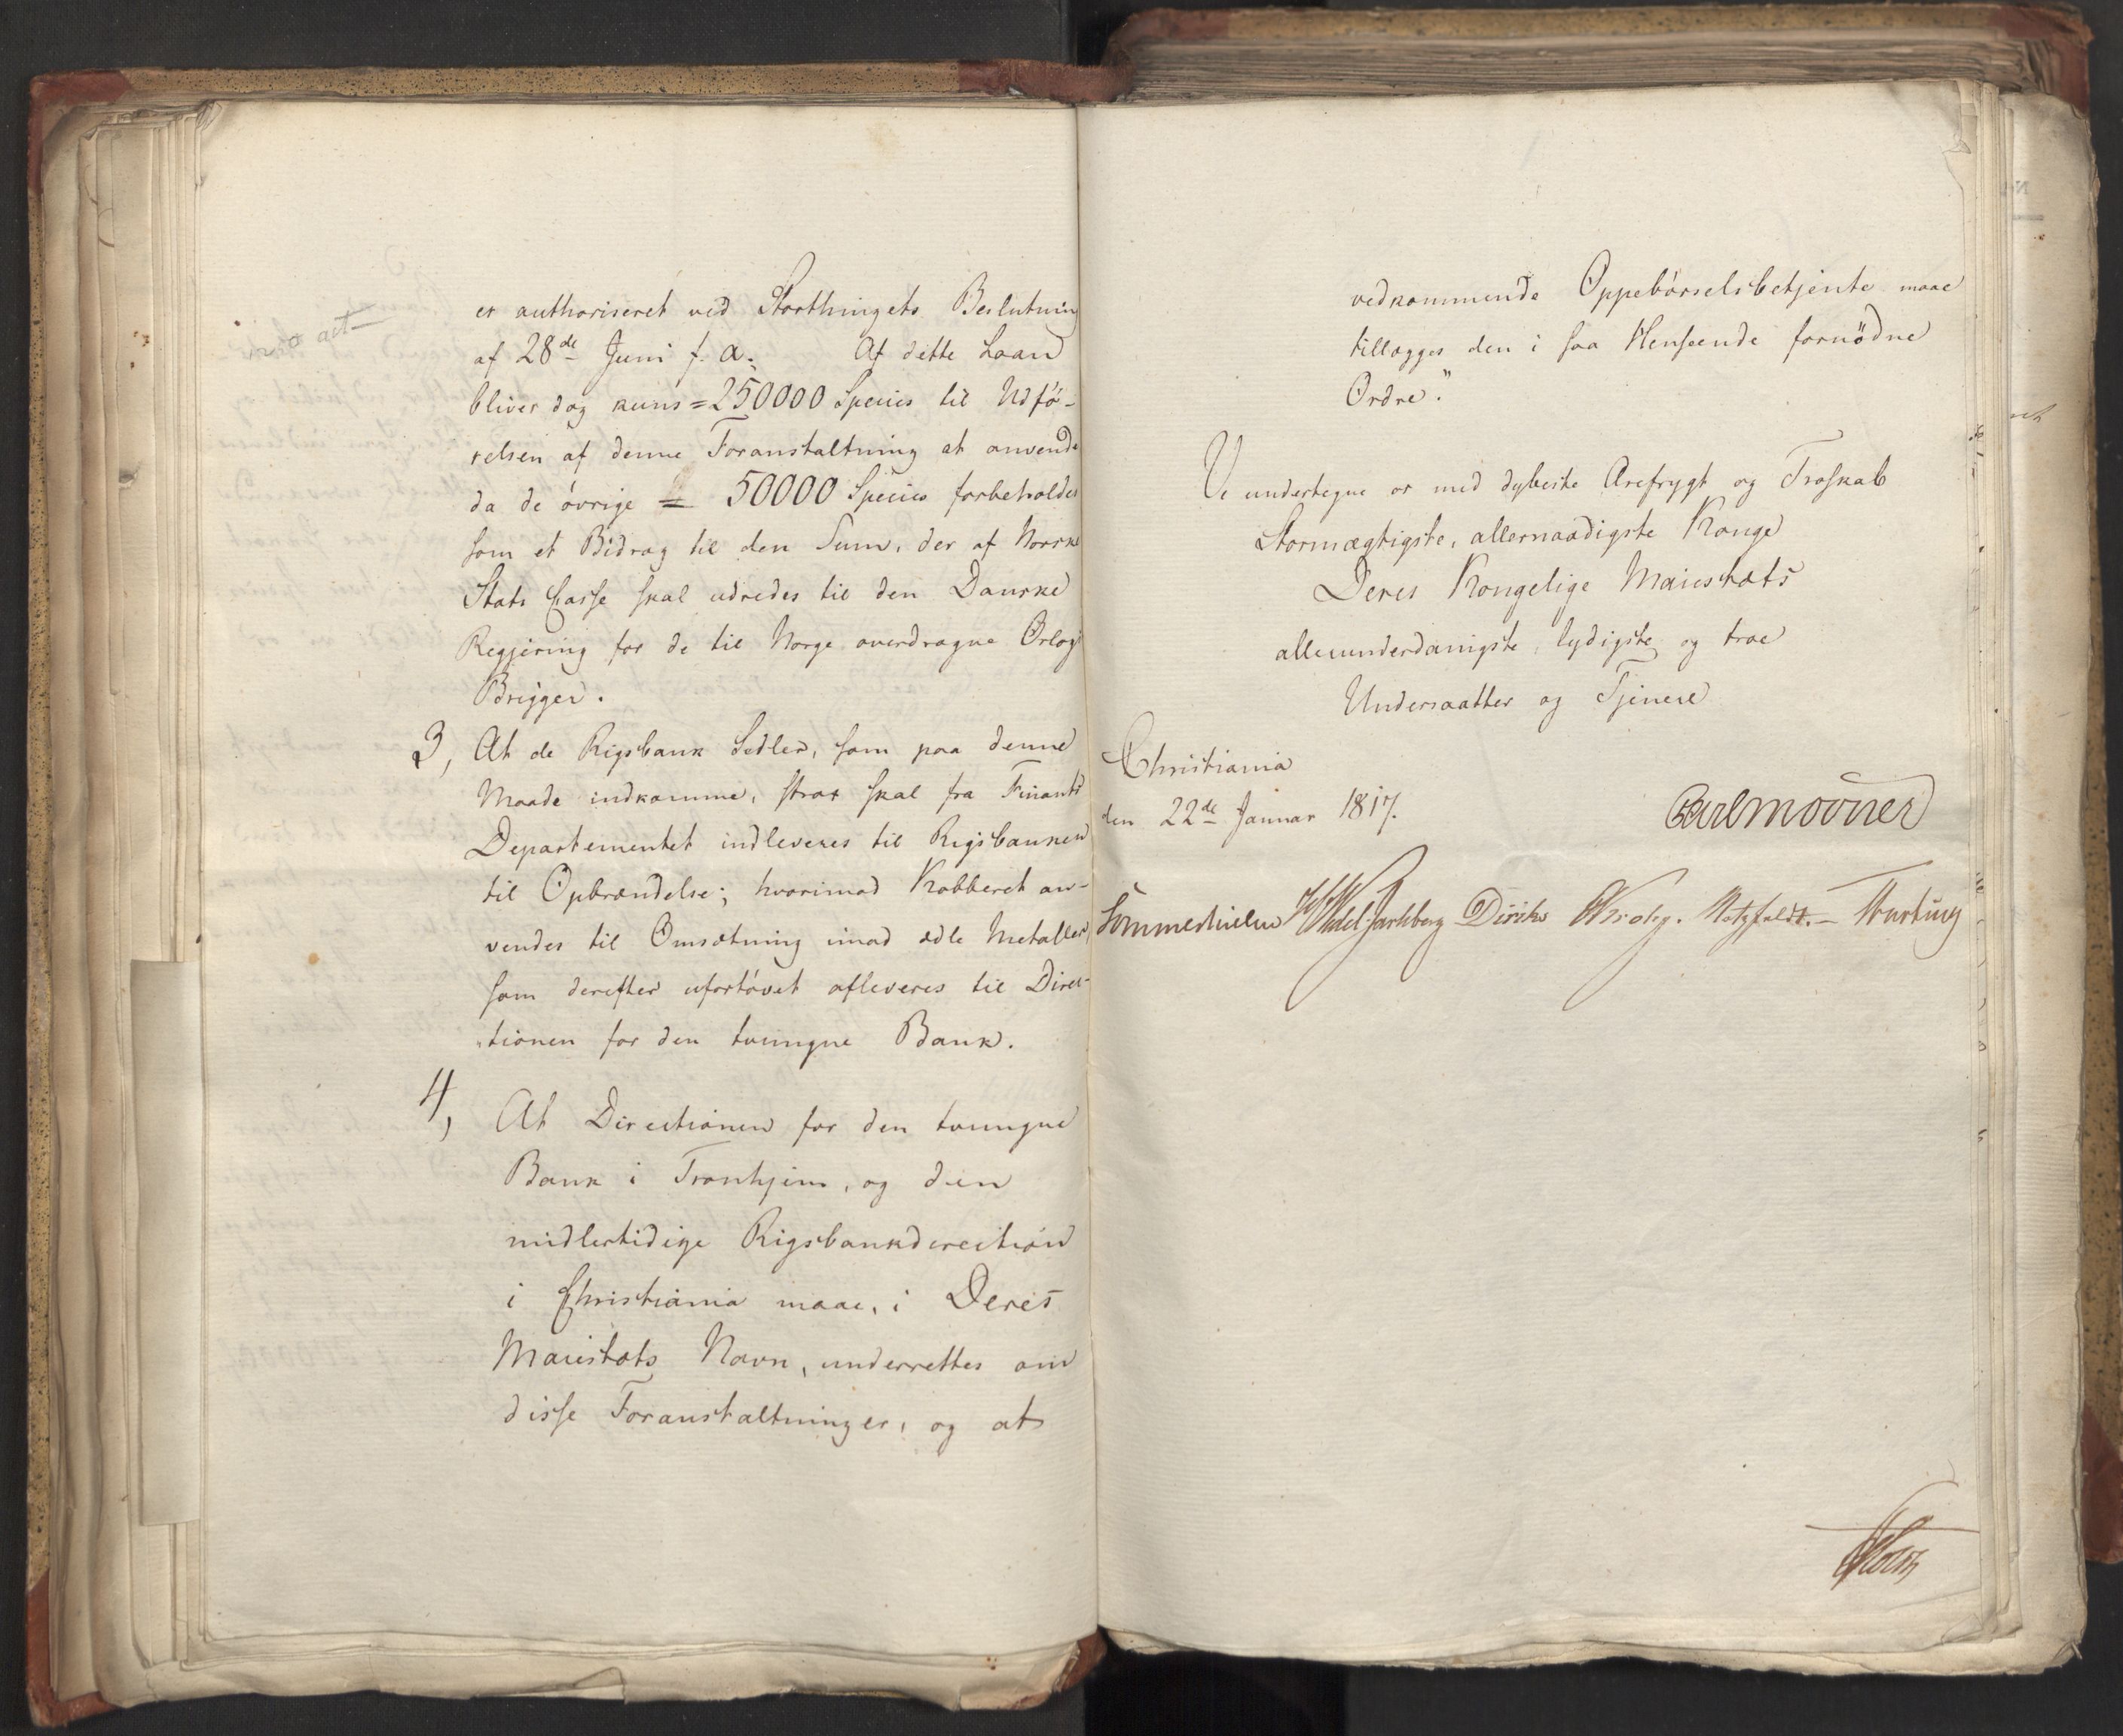 er authoriseret ved Storthingets Beslutning
af 28de Juni f. a. Af dette Laan
bliver dog kuns = 250000 Species til Udfö-
relsen af denne Foranstaltning at anvende
da de övrige = 50000 Species forbeholdes
som et Bidrag til den Sum, der af Norske
Stats Casse skal udredes til den Danske
Regjering for de til Norge overdragne Orlogs
Brigger.
3, At de Rigsbank Sedler, som paa denne
Maade indkomme, strax skal fra Finants
Departementet indleveres til Rigsbanken
til Opbrændelse; hvorimod Kobberet an-
vendes til Omsætning imod ædle Metaller,
som derefter ufortövet afleveres til Direc-
tionen for den tvungne Bank.
4, At Directionen for den tvungne
Bank i Tronhjem, og den
midlertidige Rigsbankdirection
i Christiania maae, i Deres
Maiestæts Navn, underrettes om
disse Foranstaltninger, og at
vedkommende Oppebörselsbetjente maae
tillægges den i saa Henseende fornödne
Ordre."
Vi undertegne os med dybeste Ærefrygt og Troskab
Stormægtigste, allernaadigste Konge
Deres Kongelige Maiestæts
allerunderdanigste, lydigste og troe
Undersaatter og Tjenere
Christiania
den 22de Januar 1817.
Carl Mörner
Sommerhielm Wedel-Jarlsberg Diriks Krohg. Motzfeldt. -
Holst